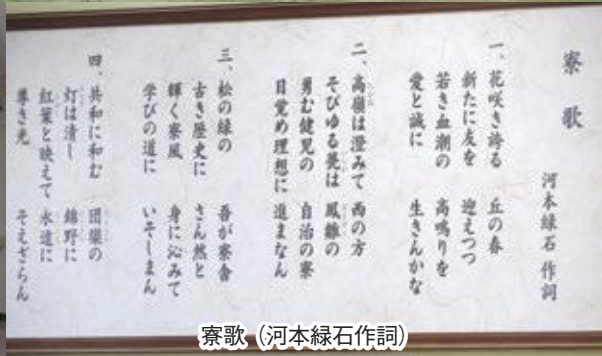 寮歌
河本緑石 作詞
一、花咲き誇る 丘の春
新たに友を 迎えつつ
若き血潮の 高鳴りを
愛と誠に 生きんかな
二、高嶺は澄みて 西の方
そびゆる甍は 鳳雛の
勇む健児の 自治の寮
目覚め理想に 進まなん
三、松の緑の 吾が寮舎
古き歴史に さん然と
輝く寮風 身に沁みて
学びの道に いそしまん
四、共和に和む 団欒の
灯は清し 錦野に
紅葉と映えて 永遠に
尊き光 そえざらん
寮歌（河本緑石作詞）